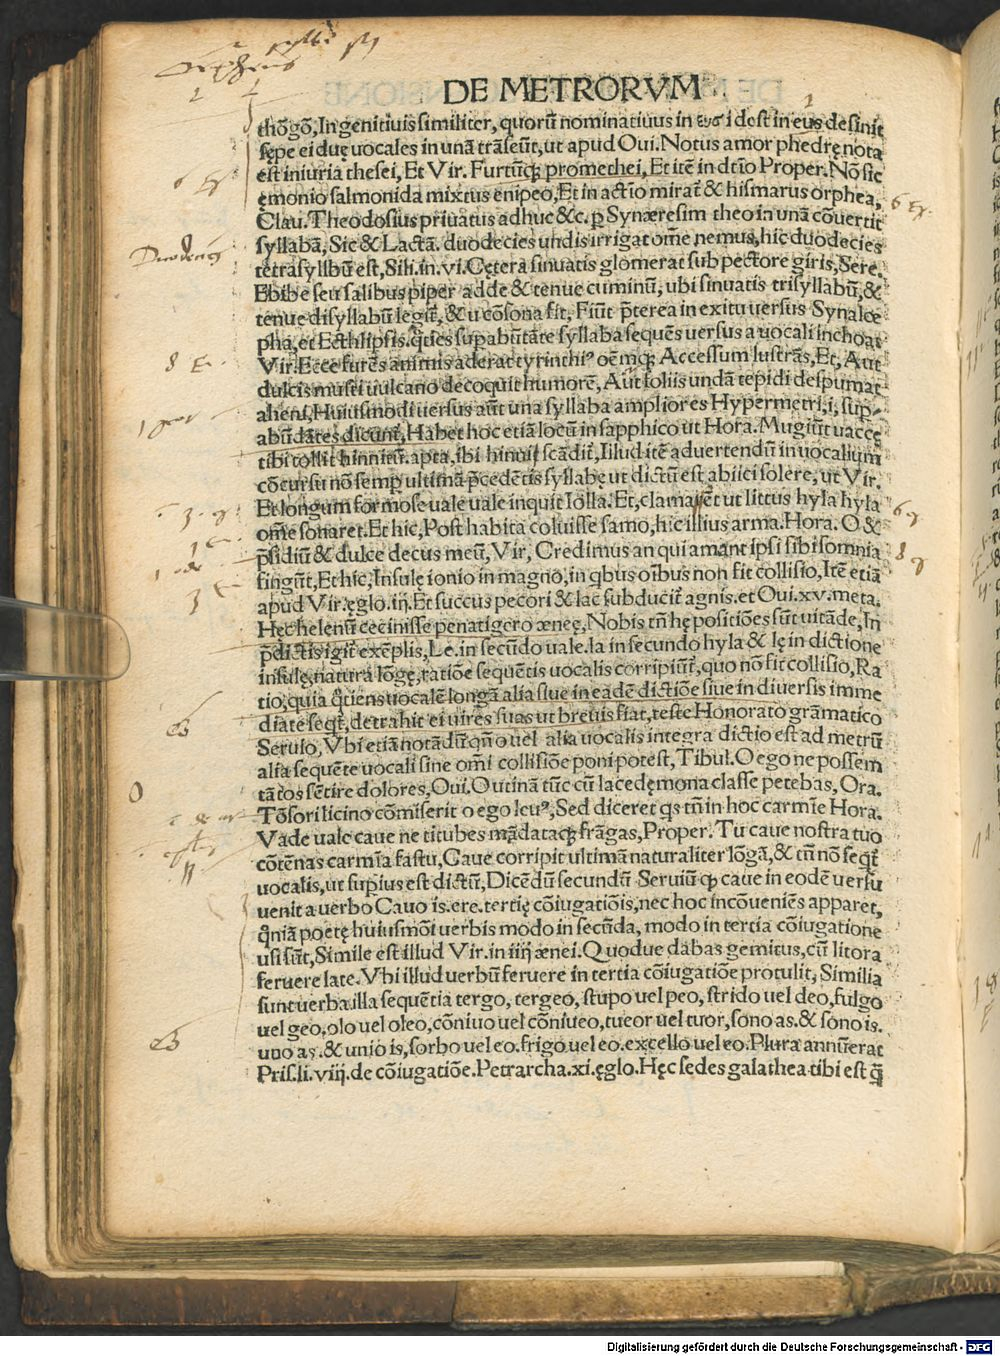 DE METRORVM
thõgõ, In genitiuis similiter, quorũ nominatiuus in ευσ idest in eus desinit
sępe ei duę uocales in unã trãseũt, ut apud Oui. Notus amor phedrę nota
est iniuria thesei, Et Vir. Furtũq; promethei, Et itẽ in dt̃io Proper. Nõ sic
ęmonio salmonida mixtus enipeo, Et in act̃io mirat̃ & hismarus orphea,
Clau. Theodosius priuatus adhuc &c. p̱ Synæresim theo in unã cõuertit
syllabã, Sic & Lactã. duodecies undis irrigat om̃e nemus, hic duodecies
tetrasyllbũ est, Sili. in. vi. Cętera sinuatis glomerat sub pectore giris, Sere.
Ebibe seu salibus piper adde & tenue cuminũ, ubi sinuatis trisyllabũ, &
tenue disyllabũ legit̃, & u cõsona fit, Fiũt p̃terea in exitu uersus Synalœ
pha, et Ecthlipsis. q̃ties supabũtãte syllaba sequẽs uersus a uocali inchoat
Vir. Ecce furẽs animis aderat tyrinthiꝰ oẽmq; Accessum lustrãs, Et, Aut
dulcis musti uulcano decoquit humorẽ, Aut foliis undã tepidi despumat
aheni, Huiusmodi uersus aũt una syllaba ampliores Hypermetri, i, sup‑
abũdãtes dicunt̃, Habet hoc etiã locũ in sapphico ut Hora. Mugiũt uaccę
tibi tollit hinnitũ. apta, ibi hinnit scãdit̃, Illud itẽ aduertendũ in uocalium
cõcursu nõ semp ultimã p̃cedẽtis syllabę ut dictũ est abiici solere, ut Vir.
Et longum formose uale uale inquit Iolla. Et, clamassẽt ut littus hyla hyla
om̃e sonaret. Et hic, Post habita coluisse samo, hic illius arma. Hora. O &
p̃sidiũ & dulce decus meũ, Vir, Credimus an qui amant ipsi sibi somnia
fingũt, Et hic, Insulę ionio in magno, in qbus oĩbus non fit collisio, Itẽ etiã
apud Vir. ęglo. iij. Et succus pecori & lac subducit̃ agnis. et Oui. xv. meta.
Hęc helenũ cecinisse penatigero æneę, Nobis tñ hę positiões sũt uitãde, In
p̃dictis igit̃ exẽplis, Le. in secũdo uale. la in secundo hyla & lę in dictione
insulę, natura lõgę, ratiõe sequẽtis uocalis corripiũt̃, quo nõ fit collisio, Ra
tio, quia q̃tiens uocalẽ longã alia siue in eadẽ dictiõe siue in diuersis imme
diate seqt̃, detrahit ei uires suas ut breuis fiat, teste Honorato grãmatico
Seruio, Vbi etiã notadũ qñ o uel alia uocalis integra dictio est ad metrũ
alia sequẽte uocali sine om̃i collisiõe poni potest, Tibul. O ego ne possem
tãtos sẽtire dolores, Oui. O utinã tũc cũ lacedęmona classe petebas, Ora.
Tõsori licino cõmiserit o ego leuꝰ, Sed diceret qs tñ in hoc carmĩe Hora.
Vade uale caue ne titubes mãdataq; frãgas, Proper. Tu caue nostra tuo
cõtẽnas carmĩa fastu, Caue corripit ultimã naturaliter lõgã, & tñ nõ seqt̃
uocalis, ut supius est dictũ, Dicẽdũ secundũ Seruiũ ꝙ caue in eodẽ uersu
uenit a uerbo Cauo is. ere. tertię cõiugatiõis, nec hoc incõueniẽs apparet,
qñiã poetę huiusmõi uerbis modo in secũda, modo in tertia cõiugatione
usi sũt, Simile est illud Vir. in iiij ænei. Quosue dabas gemitus, cũ litora
feruere late. Vbi illud uerbũ feruere in tertia cõiugatiõe protulit, Similia
sunt uerba illa sequẽtia tergo, tergeo, stupo uel peo, strido uel deo, fulgo
uel geo, olo uel oleo, cõniuo uel cõniueo, tueor uel tuor, sono as. & sono is.
uno as. & unio is, sorbo uel eo. frigo uel eo. excello uel eo. Plura annũerat
Pris. li. viij. de cõiugatiõe. Petrarcha. xi. ęglo. Hęc sedes galathea tibi est q̃
Duodecies
Digitalisierung gefördert durch die Deutsche Forschungsgemeinschaft - DFG